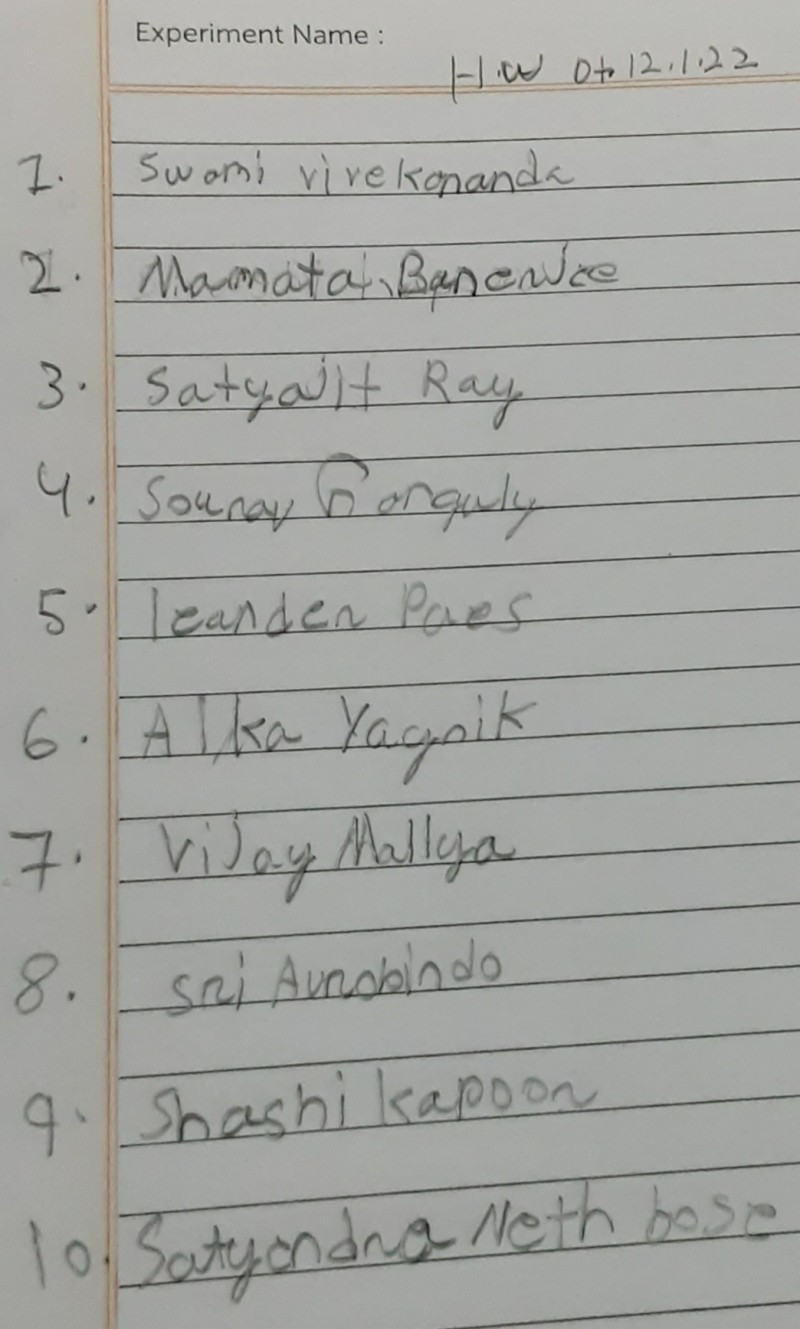 Experiment Name :
H.W Dt 12.1.22
1. Swami vivekananda
2. Mamata Banerjee
3. Satyajit Ray
4. Sourav Ganguly
5. leander Paes
6. Alka Yagnik
7. Vijay Mallya
8. Sri Aurobindo
9. Shashi kapoor
10. Satyendra Neth bose